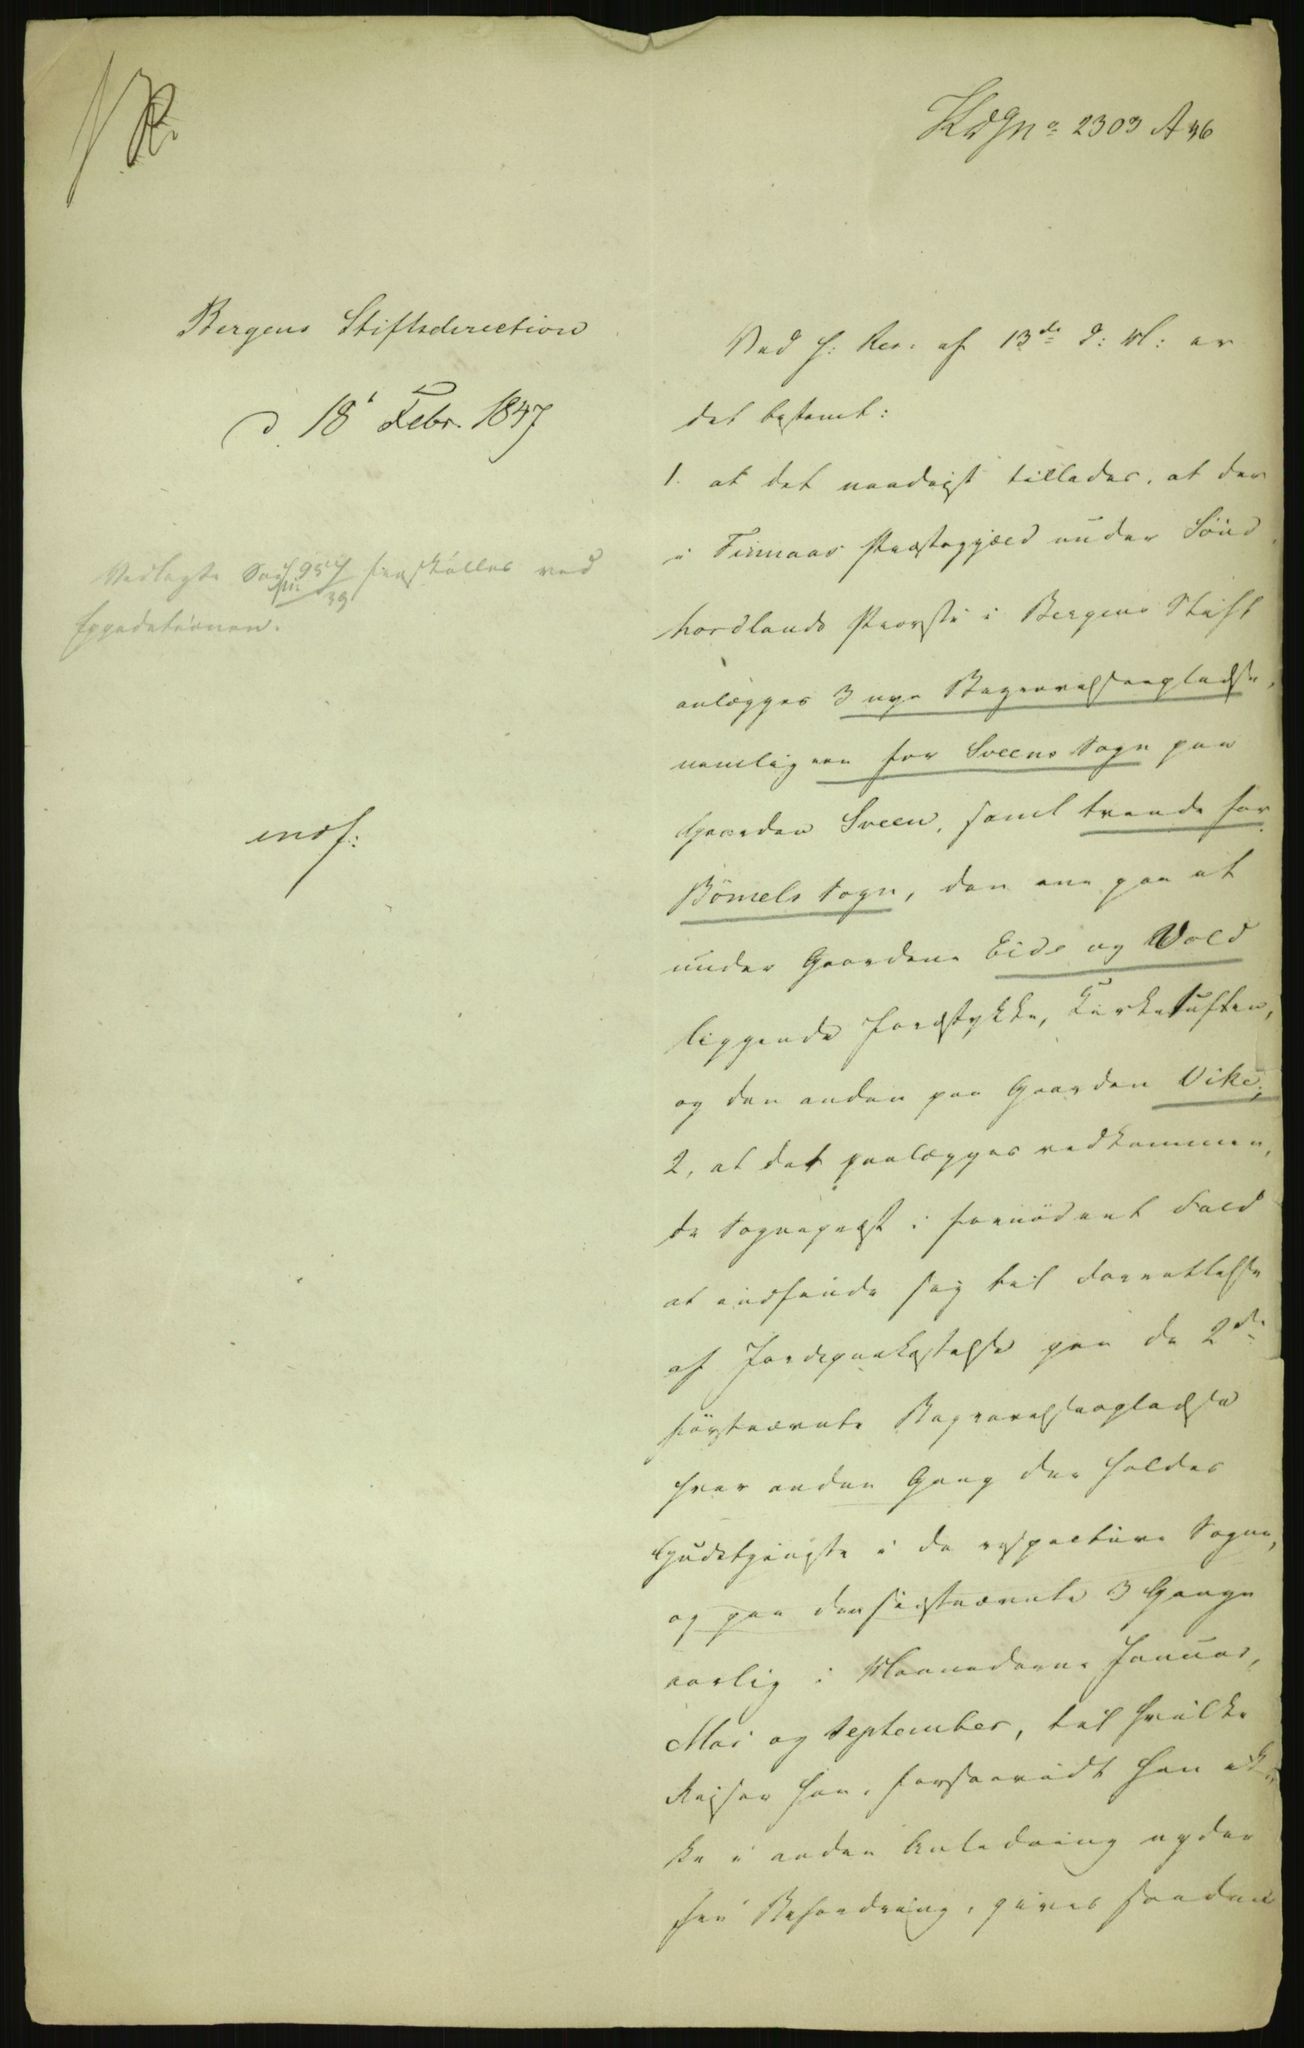 KdgNo 2303 A 36
Bergens Stiftsdirection
d. 18de Febr. 1847
Vedlagte Sag 957 fraskilles ved
39
Expeditionen.
indf:
Ved h: Res. af 13de d: M: er
det bestemt:
1. at det naadigst tillades, at der
i Finnaas Præstegjæld under Sönd-
hordlands Provsti i Bergens Stift
anlægges 3 nye Begravelsespladse,
nemlig een for Sveens Sogn paa
Gaarden Sveen, samt tvende for
Bömels Sogn, den ene paa et
under Gaardene Eide og Vold
liggende Jordstykke, Kirketuften,
og den anden paa Gaarden Vike;
2, at det paalægges vedkommen-
de Sognepræst i fornödent Fald
at indfinde sig til Forrettelse
af Jordspaakastelse paa de 2de
förstnævnte Begravelsespladse
hver anden Gang der holdes
Gudstjeneste i de respective Sogne,
og paa den sidstnævnte 3 Gange
aarlig i Maanederne Januar,
Mai og September, til hvilke
Reiser han, forsaavidt han ik-
ke i anden Anledning nyder
fri Befordring, gives saadan